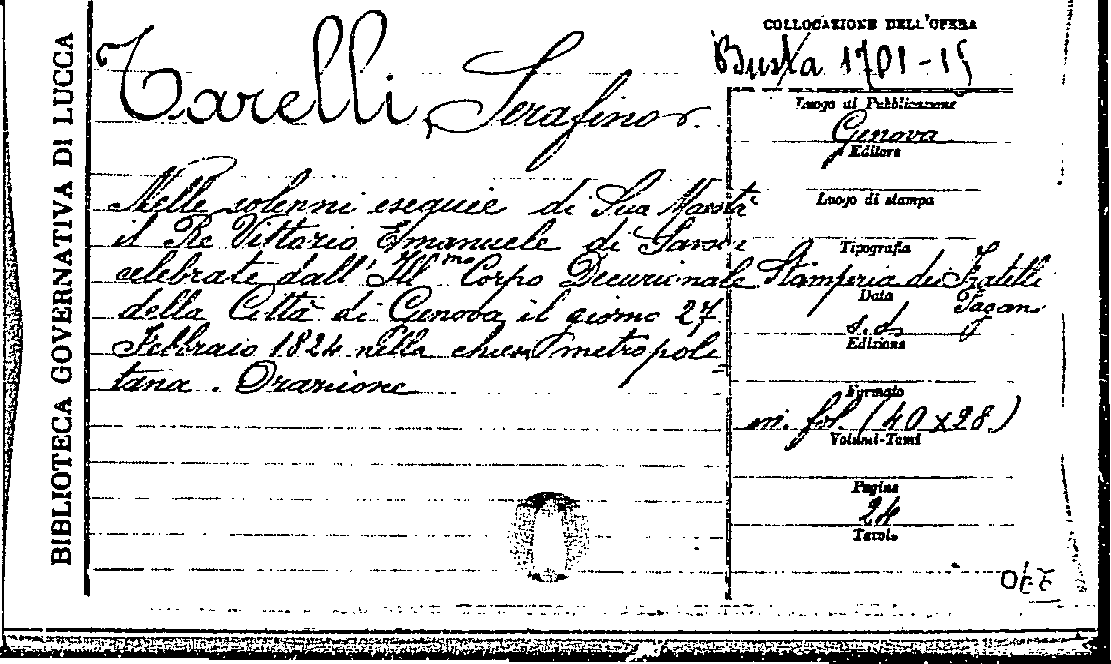 BIBLIOTECA GOVERNATIVA DI LUCCA
COLLOCAZIONE DELL'OPERA
Busta 1701-15
Tarelli, Serafino.
Nelle solenni esequie di Sua Maestà
il Re Vittorio Emanuele di Savoie
celebrate dall'Ill.mo Corpo Decurionale
della Città di Genova il giorno 27
Febbraio 1824 nella chiesa metropoli=
tana. Orazione
Luogo di Pubblicazione
Genova
Editore
Luogo di stampa
Tipografia
Stamperia dei Fratelli
Pagano
Data
s.d.
Edizione
Formato
in fol. (40x28)
Volumi-Tomi
Pagine
24
Tavole